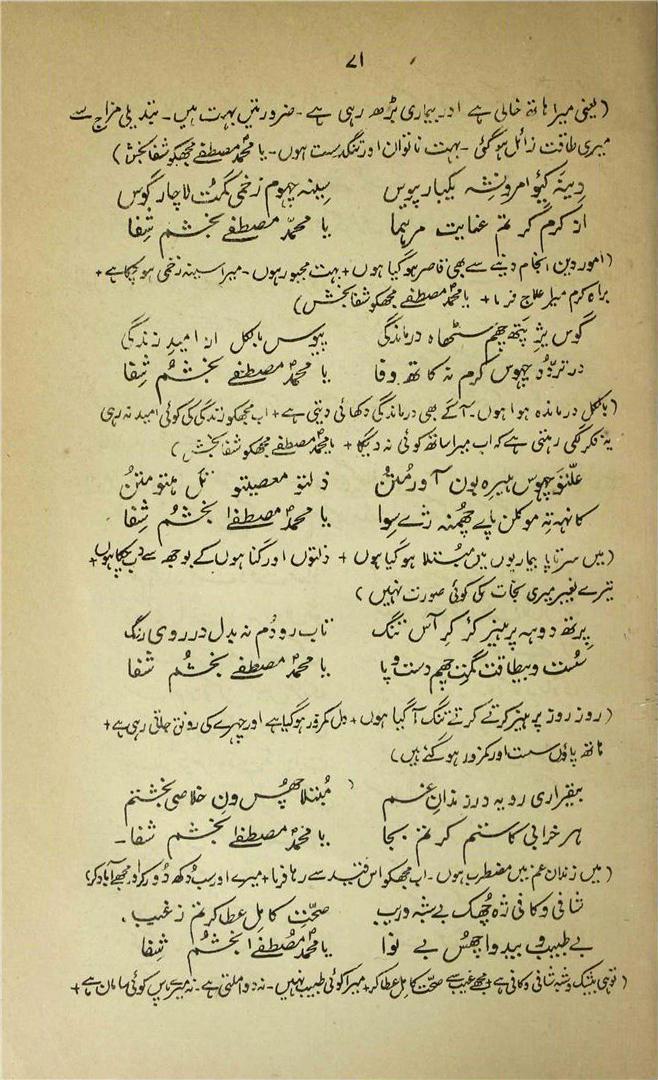 ۷۱
(یعنی میرا ہاتھ خالی ہے اور بیماری بڑھ رہی ہے ۔ ضرورتیں بہت ہیں ۔ تبدیلی مزاج سے
میری طاقت زائل ہوگئی ۔ بہت ناتوان اور تنگدست ہوں ۔ یا محمدؐ مصطفےٰ مجھکو شفا بخش)
دینہ کیو امرو نشہ یکبار پیوس سینہ چہوم زخمی گمُت لاچار گوس
از کرم گر تم عنایت مرہما یا محمدؐ مصطفےٰ بخشُم شِفا
(امور دین انجام دینے سے بھی قاصر ہوگیا ہوں + بہت مجبور ہوں ۔ میرا سینہ زخمی ہوچکا ہے +
براہ کرم میرا علاج فرما + یا محمدؐ مصطفےٰ مجھکو شفا بخش)
گوس یژ پتھ چھم سٹھاہ درماندگی پیوس بالکل از امیدِ زندگی
در تردّد چہوس کرم نہ کانہہ وفا یا محمدؐ مصطفےٰ بخشُم شِفا
(بالکل درماندہ ہوا ہوں ۔ آگے بھی درماندگی دکھائی دیتی ہے + اب مجھکو زندگی کی کوئی امید نہ رہی
یہ فکر لگی رہتی ہے کہ اب میرا ساتھ کوئی نہ دیگا + یا محمدؐ مصطفےٰ مجھکو شفا بخش)
علّتو چہوس ہیرہ بون آورمُتُ ذلتو معصیتو تل ہتو متُن
کانہہ تہ موکلن پاے چھمنہ ژے سِوا یا محمدؐ مصطفےٰ بخشُم شِفا
(میں سرتاپا بیماریوں میں مُبتلا ہوگیا ہوں + ذلتوں اور گناہوں کے بوجھ سے دب چکا ہوں +
تیرے بغیر میری نجات کی کوئی صورت نہیں)
پرتھ دوہہ پرہیز کر کر آس تنگ تاب رودُم نہ بدل در روی رنگ
سُست و بیطاقت گمت چھم دست و پا یا محمدؐ مصطفےٰ بخشُم شفا
(روز روز پرہیز کرتے کرتے تنگ آگیا ہوں + دل کمزور ہوگیا ہے اور چہرے کی رونق جاتی رہی ہے +
ہاتھ پاؤں سست اور کمزور ہوگئے ہیں)
بیقراری رو بہ در زندانِ غم مُبتلا چھُس ون خلاصی بخشتم
ہر خرابی کاستم کر تم بجا یا محمدؐ مصطفےٰ بخشُم شفا ۔
(میں زندان غم میں مضطرب ہوں ۔ اب مجھکو اس قید سے رہا فرما + میرے اور سب دُکھ دُور کر اور مجھے آباد کر)
شافی و کافی ژہ چھک بے شبہ و ریب صحتِ کامل عطا کر تم ز غیب ،
بے طبیب و بے دوا چھس بے نوا یا محمدؐ مصطفےٰ بخشُم شِفا
(تو ہی بیشک و شبہ شافی و کافی ہے + مجھے غیب سے صحت کامل عطا کر + میرا کوئی طبیب نہیں ۔ نہ دوا ملتی ہے ۔ نہ میرے پاس کوئی سامان ہے +